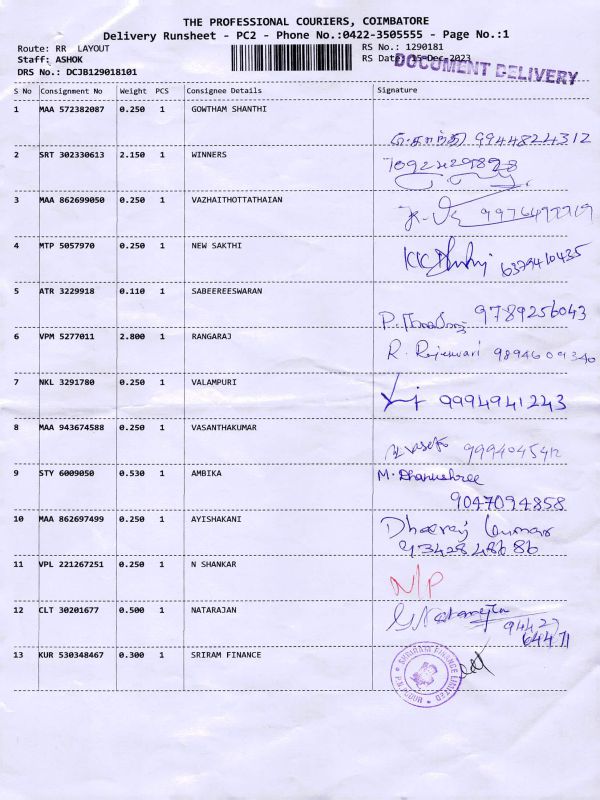 THE PROFESSIONAL COURIERS, COIMBATORE
Delivery Runsheet - PC2 - Phone No.:0422-3505555 - Page No.:1
Route: RR LAYOUT RS No.: 1290181
Staff: ASHOK RS Date: 15-Dec-2023
DRS No.: DCJB129018101
DOCUMENT DELIVERY
S No Consignment No Weight PCS Consignee Details Signature
1 MAA 572382087 0.250 1 GOWTHAM SHANTHI
9944824312
2 SRT 302330613 2.150 1 WINNERS
3 MAA 862699050 0.250 1 VAZHAITHOTTATHAIAN
4 MTP 5057970 0.250 1 NEW SAKTHI
6379410435
5 ATR 3229918 0.110 1 SABEEREESWARAN
9789256043
6 VPM 5277011 2.800 1 RANGARAJ
R. Rajeswari 9894609340
7 NKL 3291780 0.250 1 VALAMPURI
9994941243
8 MAA 943674588 0.250 1 VASANTHAKUMAR
9 STY 6009050 0.530 1 AMBIKA
M. Dhanushree
9047094858
10 MAA 862697499 0.250 1 AYISHAKANI
Dheeraj Kumar
9342848686
11 VPL 221267251 0.250 1 N SHANKAR
N/P
12 CLT 30201677 0.500 1 NATARAJAN
G. Natarajan
94427
64471
13 KUR 530348467 0.300 1 SRIRAM FINANCE
SHRIRAM FINANCE LIMITED
P.N.PUDUR